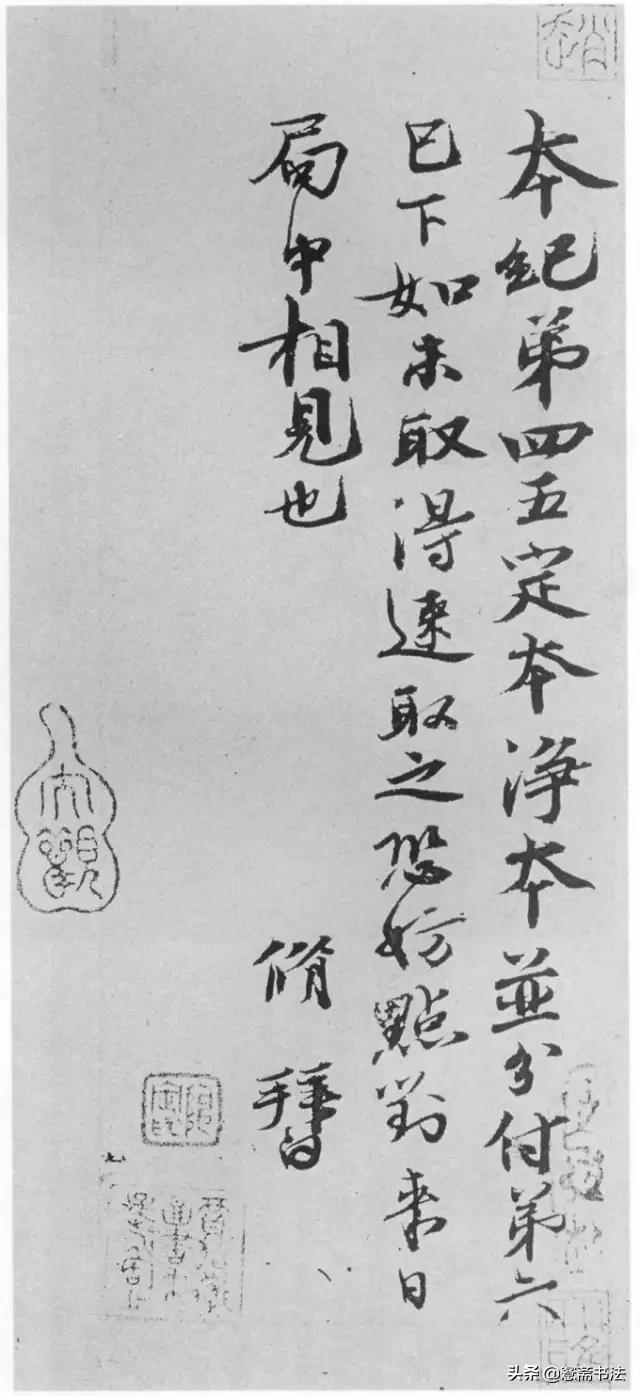 本紀弟四五定本淨本並分付弟六
已下如未取得速取之恐妨點對来日
局中相見也
脩 拜白
大觀
頭条 @慤斋书法